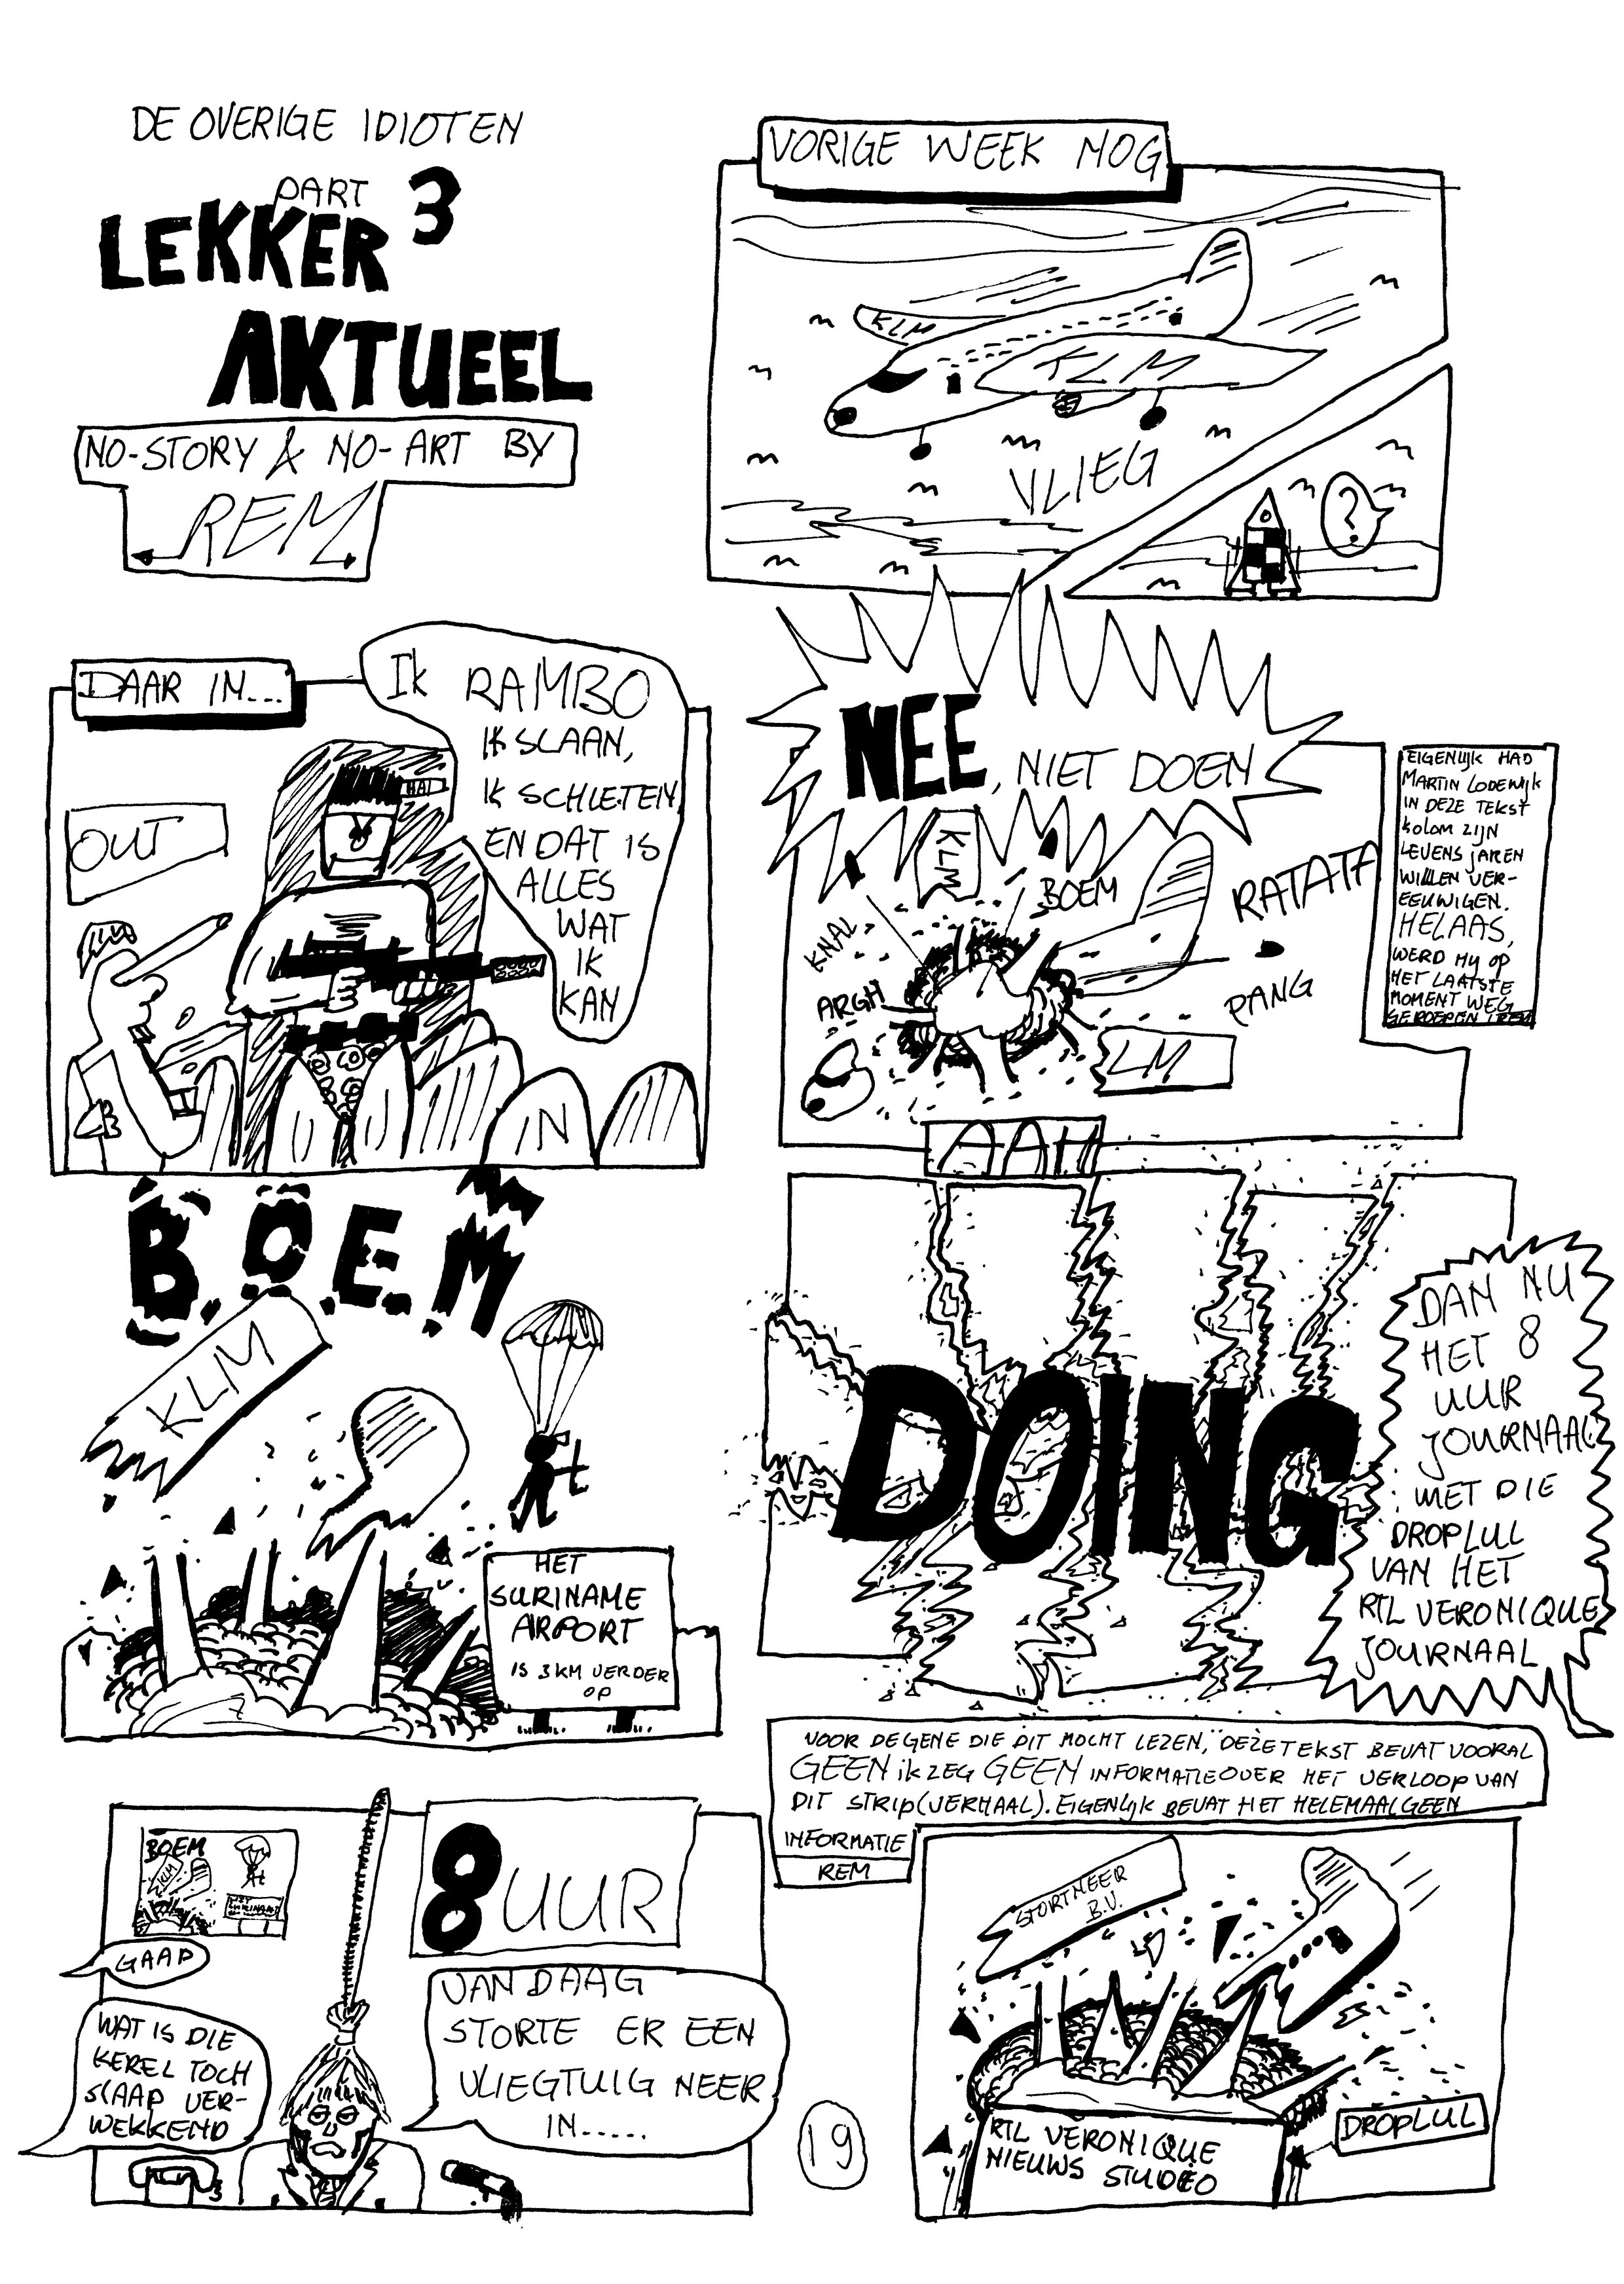 DE OVERIGE IDIOTEN
PART 3
LEKKER
AKTUEEL
NO-STORY & NO-ART BY
REM
VORIGE WEEK NOG
KLM
KLM
VLIEG
?
DAAR IN...
IK RAMBO
IK SLAAN,
IK SCHIETEN
EN DAT IS
ALLES
WAT
IK
KAN
HAI
OUT
IN
NEE, NIET DOEN
KLM
BOEM
RATATA
KNAL
ARGH
PANG
LM
EIGENLIJK HAD
MARTIN LODEWIJK
IN DEZE TEKST
KOLOM ZIJN
LEVENS JAREN
WILLEN VER-
EEUWIGEN.
HELAAS,
WERD HIJ OP
HET LAATSTE
MOMENT WEG
GEROEPEN (REM
B.O.E.M
KLM
HET
SURINAME
ARPORT
IS 3 KM VERDER
OP
AAH
DOING
DAN NU
HET 8
UUR
JOURNAAL
MET DIE
DROPLUL
VAN HET
RTL VERONIQUE
JOURNAAL
VOOR DEGENE DIE DIT MOCHT LEZEN, DEZE TEKST BEVAT VOORAL
GEEN IK ZEG GEEN INFORMATIE OVER HET VERLOOP VAN
DIT STRIP(VERHAAL). EIGENLIJK BEVAT HET HELEMAAL GEEN
INFORMATIE
REM
BOEM
KLM
GAAP
WAT IS DIE
KEREL TOCH
SLAAP VER-
WEKKEND
8 UUR
VANDAAG
STORTE ER EEN
VLIEGTUIG NEER
IN.....
19
STORTNEER
B.V.
RTL VERONIQUE
NIEUWS STUDEO
DROPLUL